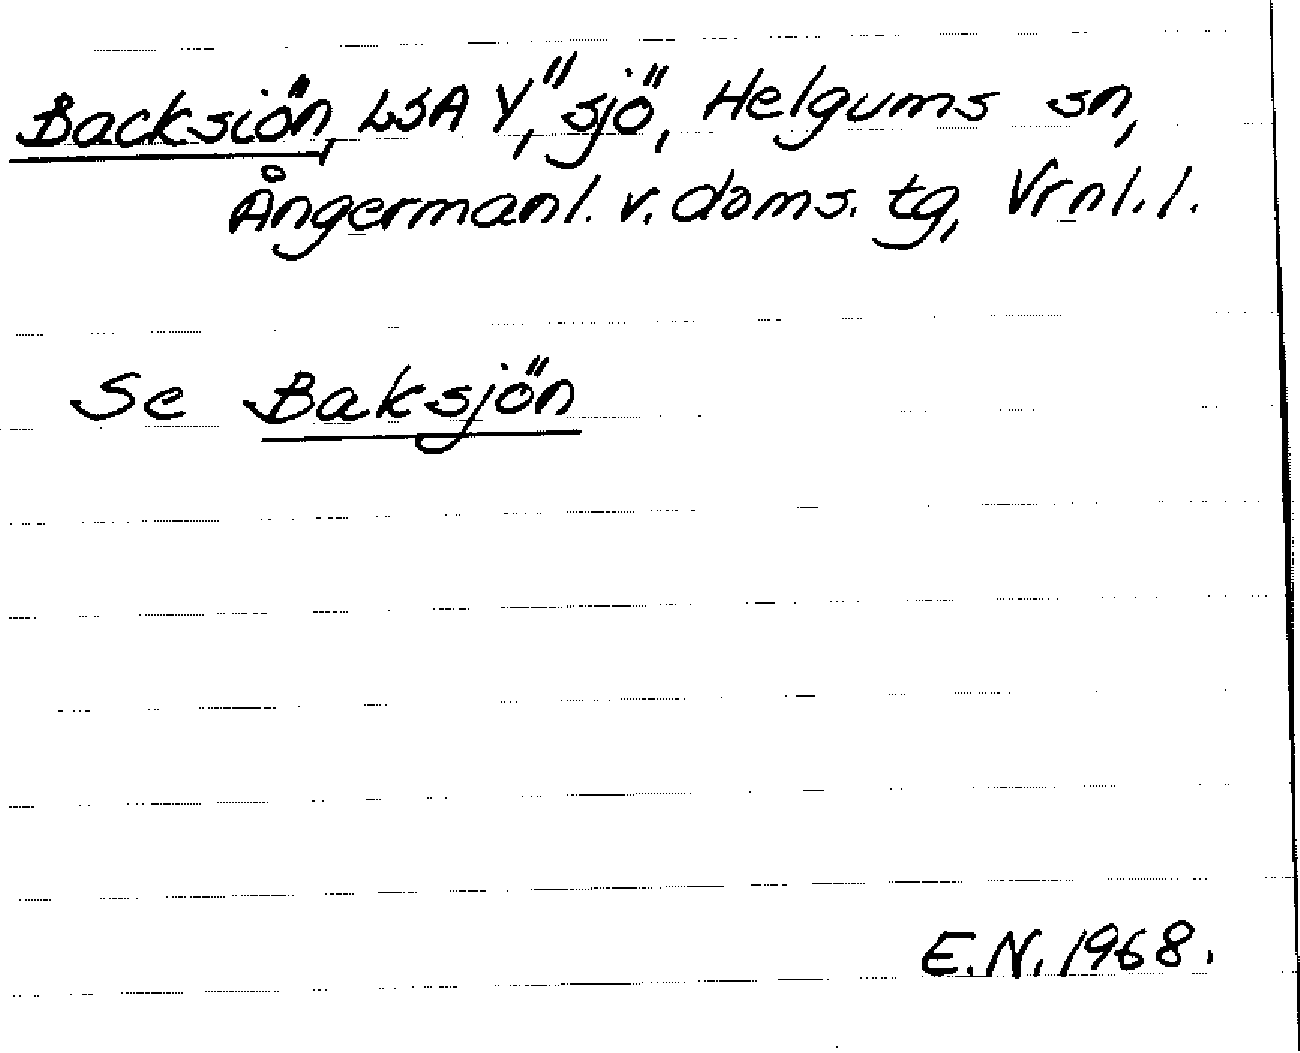 Backsiön, LSA Y, sjö, Helgums sn,
Ångermanl. v. doms. tg, Vrnl. l.
Se Baksjön
E.N. 1968.